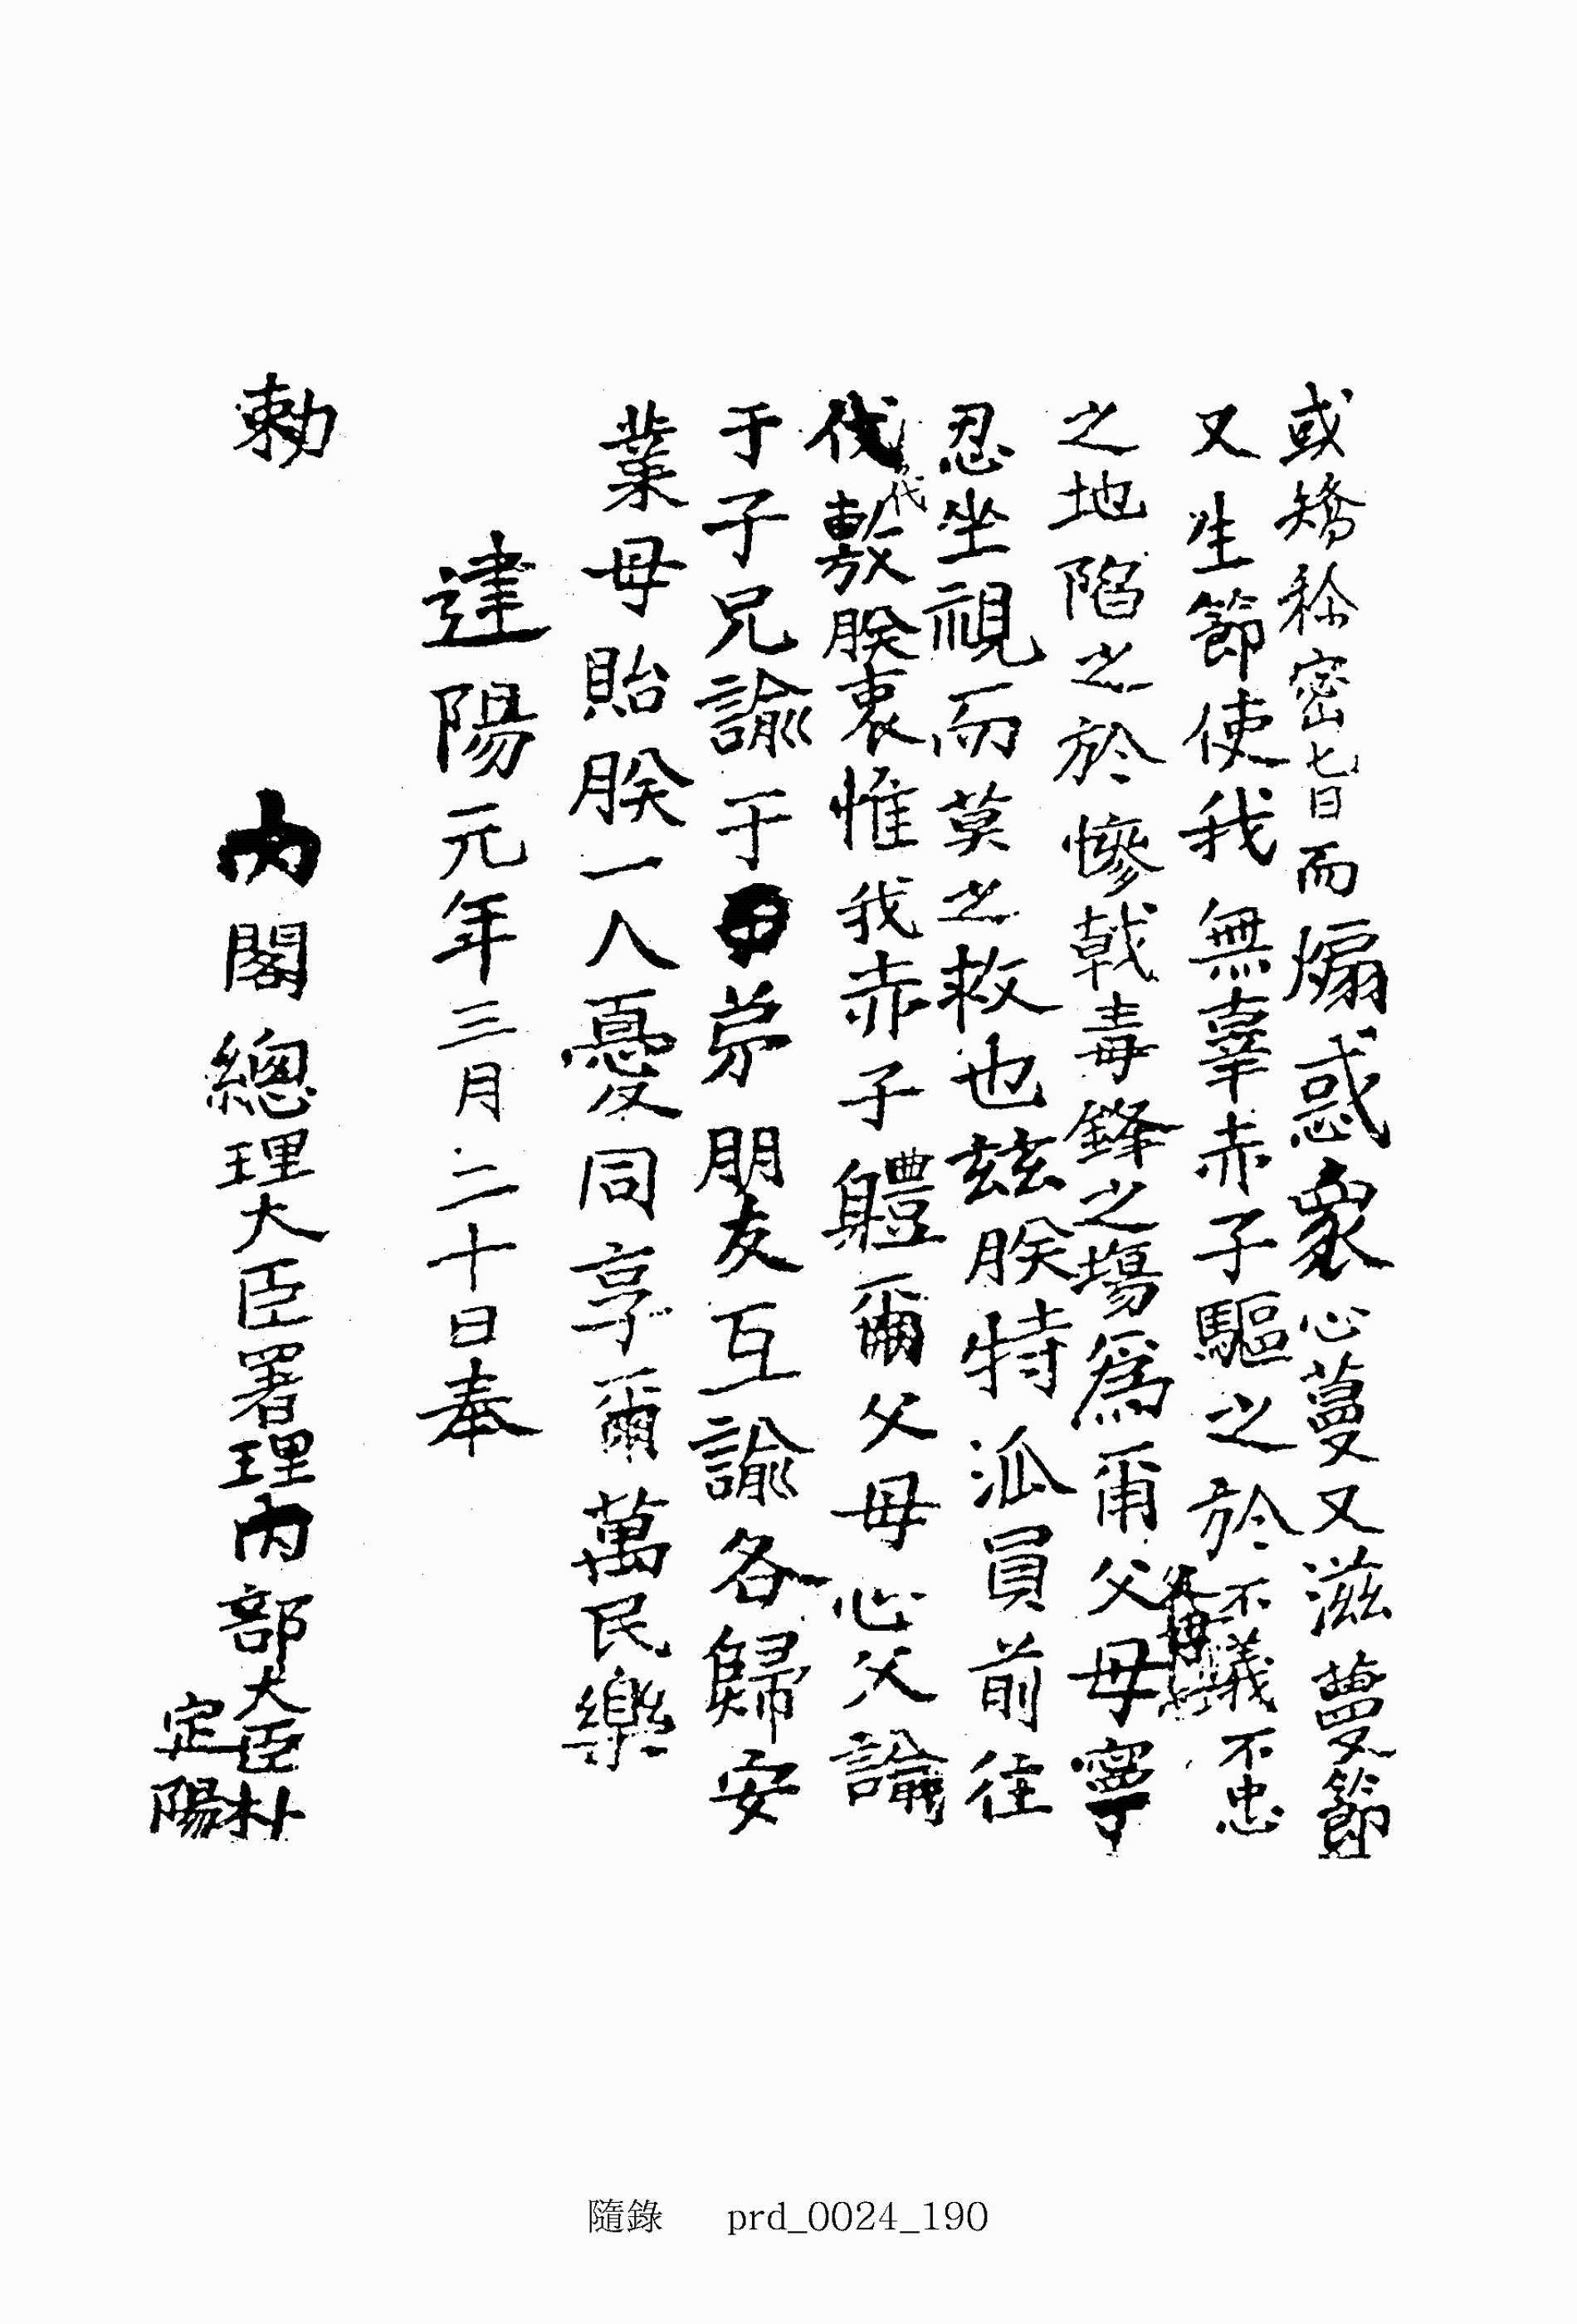 或矯称密旨而煽惑衆心蔓又滋蔓節
又生節使我無辜赤子驅之於不議不忠
之地陷之於慘戟毒鋒之場爲爾父母寧
忍坐視而莫之救也玆朕特派員前往
代敷朕衷惟我赤子軆爾父母心父諭
于子兄諭于弟朋友互諭各歸安
業毋貽朕一人憂同享爾萬民樂
建陽元年三月二十日奉
勅
內閣總理大臣署理內部大臣朴
定陽
隨錄 prd_0024_190